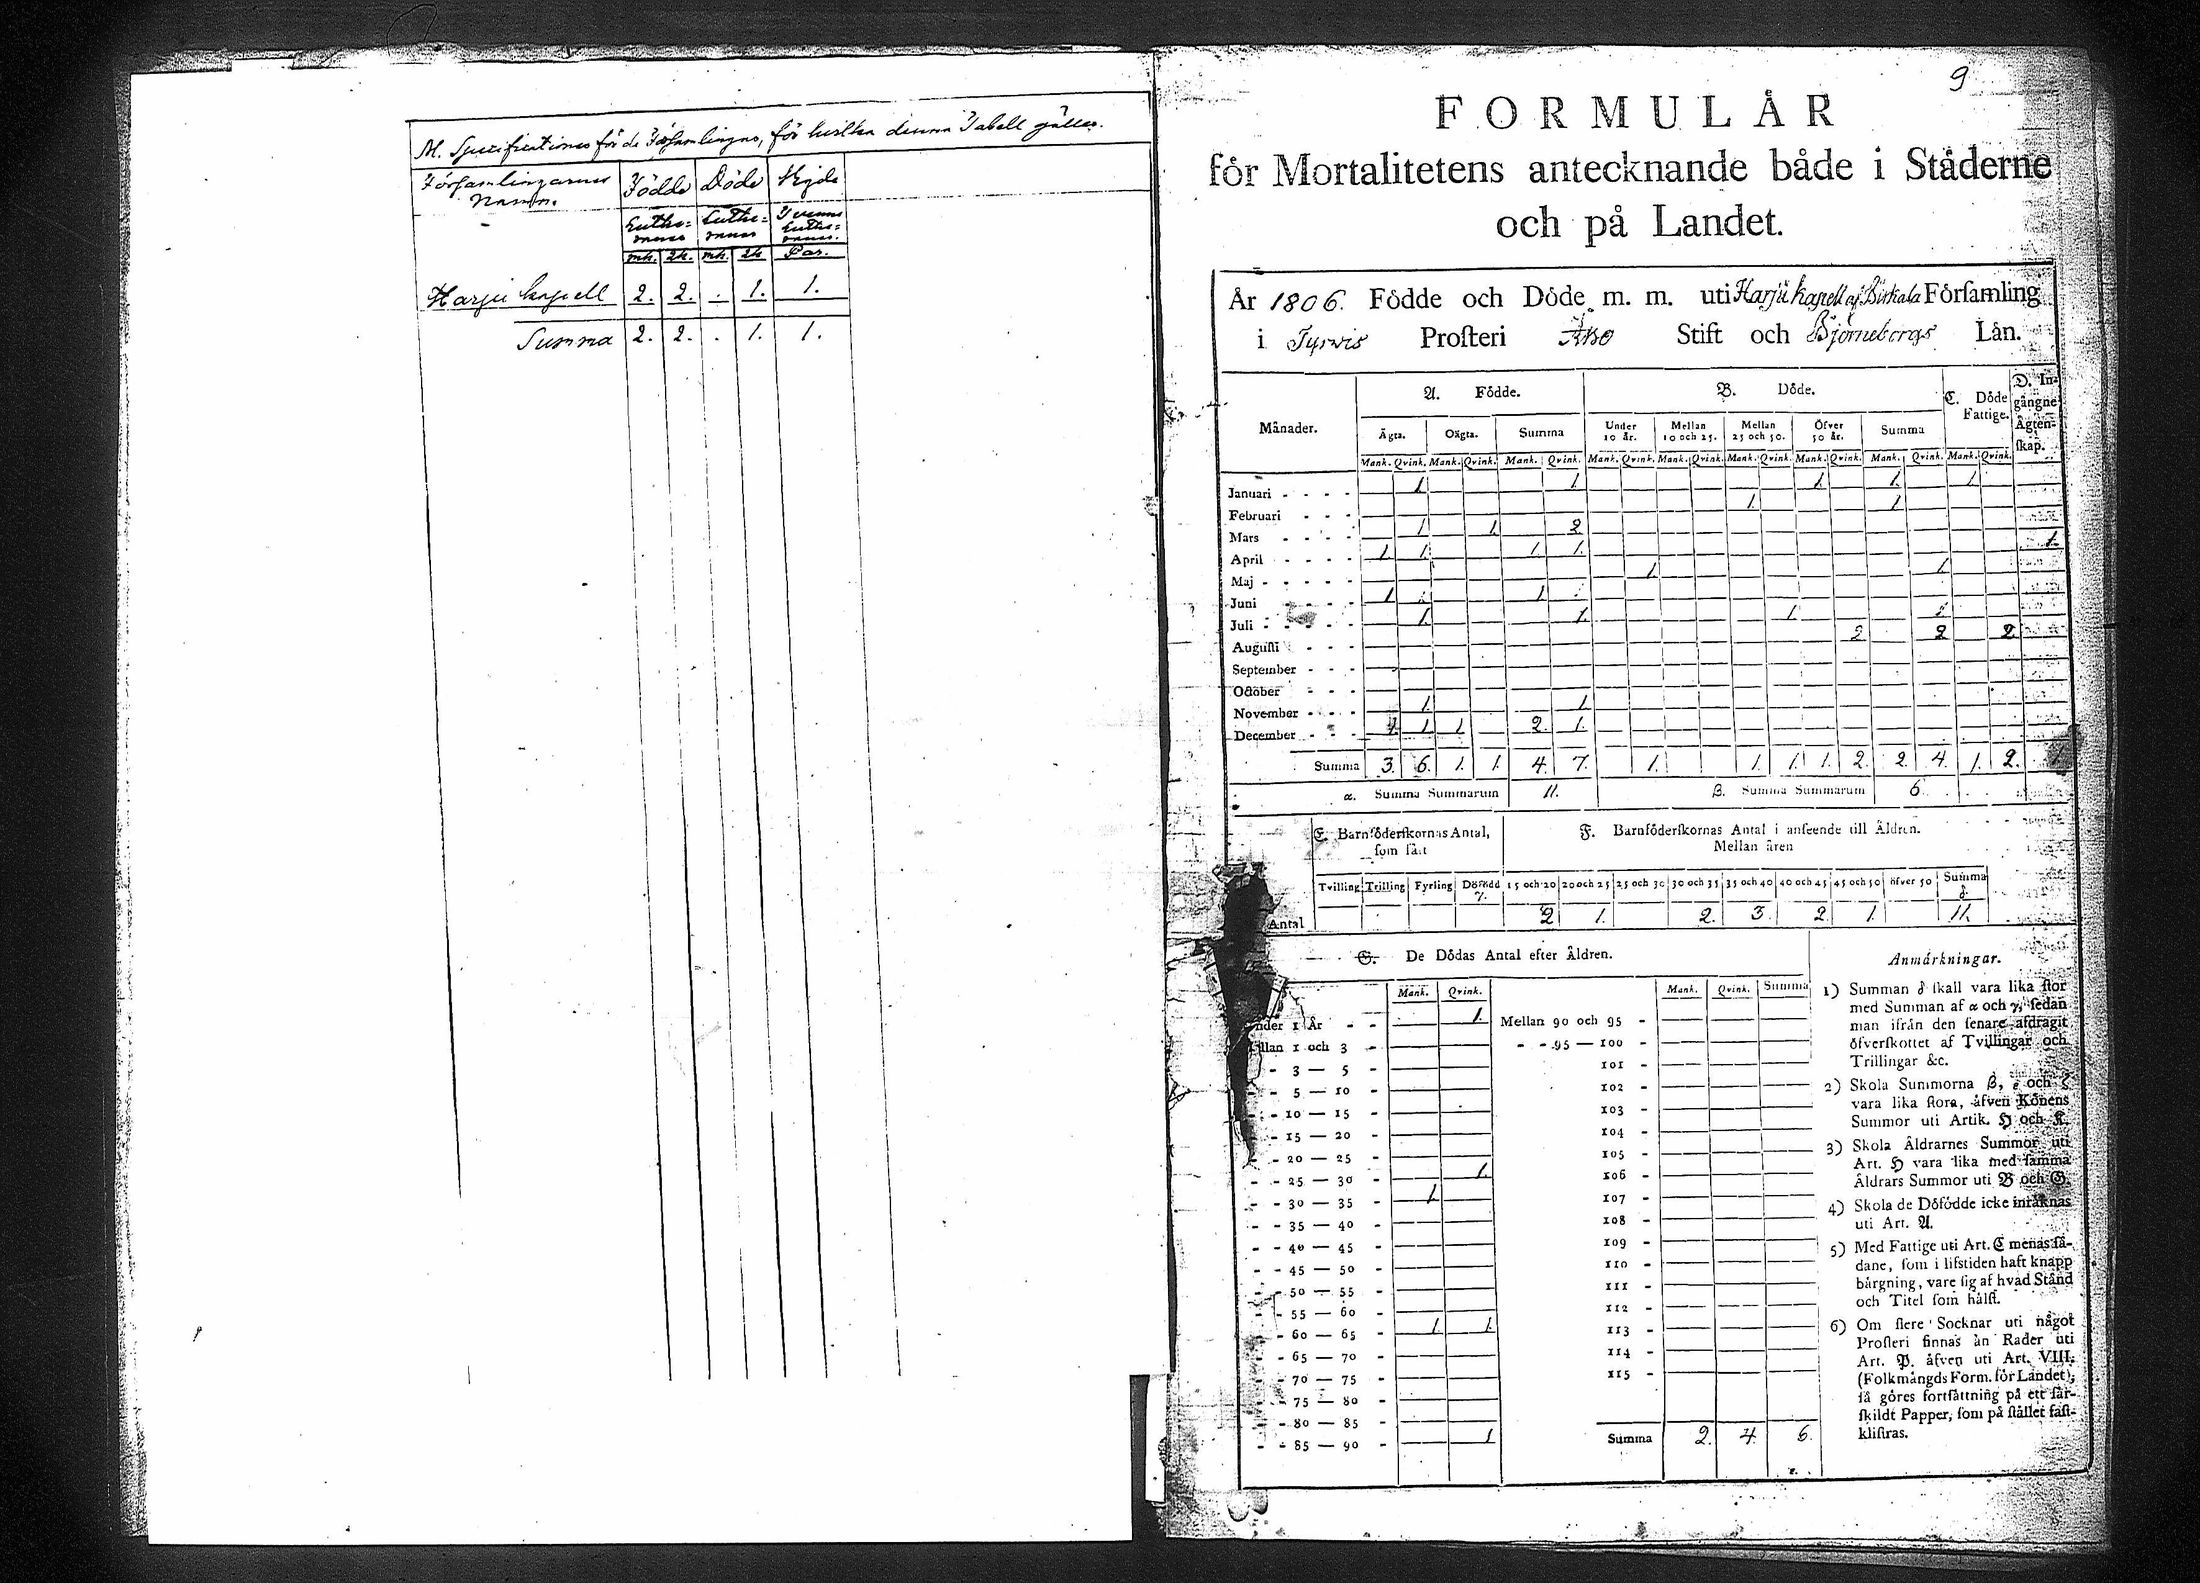 M. Specification för de Församlingar, för hvilka denna Tabell gäller.
Församlingarnes Namn. Födde Döde Vigde
Luthe= Luthe= Tvenne
raner raner Luthe=
raner.
mk. qk. mk. qk Par.
Harju kapell 2. 2. . 1. 1.
Summa 2. 2. . 1. 1.
9
FORMULÅR
för Mortalitetens antecknande både i Ståderne
och på Landet.
År 1806. Födde och Döde m. m. uti Harju kapell af Birkala Förſamling
i Tyrvis Proſteri Åbo Stift och Björneborgs Lån.
Månader. A. Födde. B. Döde. C. Döde Fattige. D. Ingångne Ågtenſkap.
Ågta. Oågta. Summa Under 10 år. Mellan 10 och 25. Mellan 25 och 50. Öfver 50 år. Summa
Mank. Qvink. Mank. Qvink. Mank. Qvink. Mank. Qvink. Mank. Qvink. Mank. Qvink. Mank. Qvink. Mank. Qvink. Mank. Qvink.
Januari - - - - 1. 1. 1. 1. 1.
Februari - - - 1. 1.
Mars - - - - 1. 1. 2.
April - - - - 1. 1. 1. 1. 1.
Maj - - - - - 1. 1.
Juni - - - - 1. 1.
Juli - - - - - 1. 1. 1.
Auguſti - - - 2. 2. 2.
September - - -
October - - -
November - - - 1. 1.
December - - - 1. 1. 1. 2. 1.
Summa 3. 6. 1. 1. 4. 7. 1. 1. 1. 1. 2. 2. 4. 1. 2. 1.
α. Summa Summarum 11. β. Summa Summarum 6.
E. Barnföderſkornas Antal, ſom fått F. Barnföderſkornas Antal i anſeende till Åldren.
Mellan åren
Tvilling Trilling Fyrling Döfödd γ. 15 och 20 20 och 25 25 och 30 30 och 35 35 och 40 40 och 45 45 och 50 öfver 50 Summa δ
Antal 2 1. 2. 3. 2. 1. 11.
G. De Dödas Antal efter Åldren.
Mank. Qvink. Mank. Qvink. Summa
nder 1 År - - 1. Mellan 90 och 95 -
llan 1 och 3 - - - 95 — 100 -
- 3 — 5 - 101 -
- - 5 — 10 - 102 -
- - 10 — 15 - 103 -
- - 15 — 20 - 104 -
- - 20 — 25 - 105 -
- - 25 — 30 - 1. 106 -
- - 30 — 35 - 1. 107 -
- - 35 — 40 - 108 -
- - 40 — 45 - 109 -
- - 45 — 50 - 110 -
- - 50 — 55 - 111 -
- - 55 — 60 - 112 -
- - 60 — 65 - 1. 1. 113 -
- - 65 — 70 - 114 -
- - 70 — 75 - 115 -
- - 75 — 80 -
- - 80 — 85 -
- - 85 — 90 - 1. Summa 2. 4. 6.
ε.
Anmårkningar.
1) Summan δ ſkall vara lika ſtor
med Summan af α och γ, ſedan
man ifrån den ſenare afdragit
öfverſkottet af Tvillingar och
Trillingar &c.
2) Skola Summorna β, ε och ζ
vara lika ſtora, åfven Könens
Summor uti Artik. H och K.
3) Skola Åldrarnes Summor uti
Art. H vara lika med ſamma
Åldrars Summor uti B och G.
4) Skola de Döfödde icke inråknas
uti Art. A.
5) Med Fattige uti Art. C menas ſå-
dane, ſom i lifstiden haft knapp
bårgning, vare ſig af hvad Stånd
och Titel ſom hålſt.
6) Om flere Socknar uti något
Proſteri finnas ån Rader uti
Art. P. åfven uti Art. VIII.
(Folkmångds Form. för Landet),
ſå göres fortſåttning på ett ſår-
ſkildt Papper, ſom på ſtållet faſt-
kliſtras.